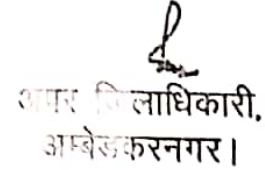 अपर जिलाधिकारी,
अम्बेडकरनगर।